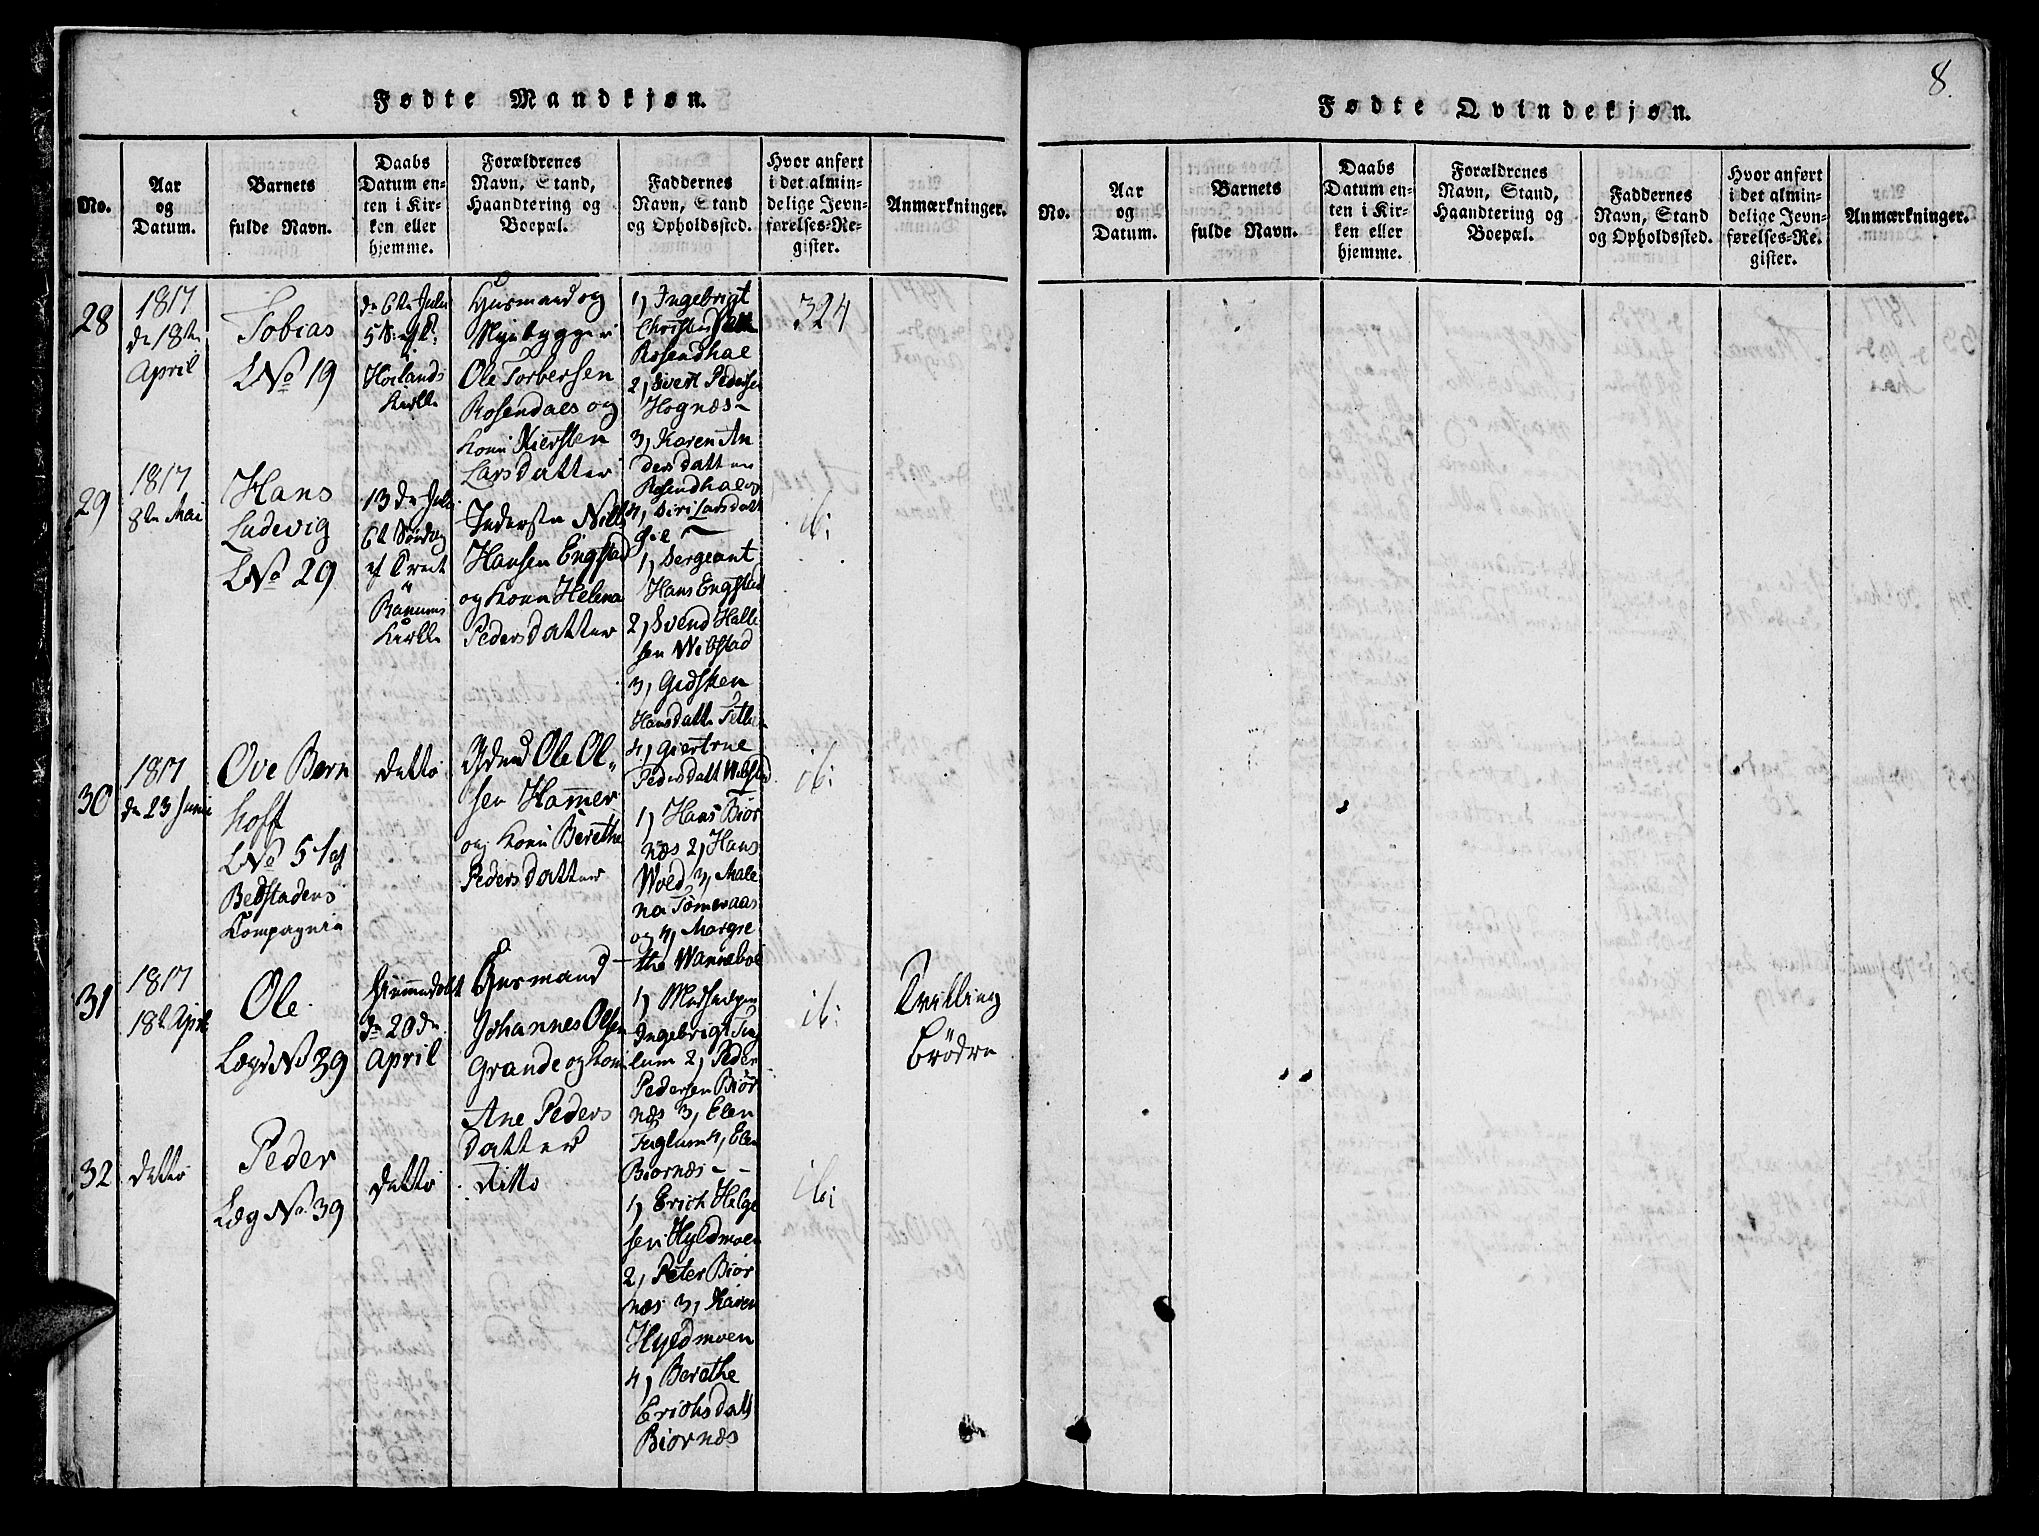 Fødte Mandkjøn.
No.
Aar
og
Datum.
Barnets
fulde Navn.
Daabs
Datum en-
ten i Kir-
ken eller
hjemme.
Forældrenes
Navn, Stand,
Haandtering og
Boepæl.
Faddernes
Navn, Stand
og Opholdssted.
Hvor anført
i det almin-
delige Jevn-
førelses-Re-
gister.
Anmærkninger.
28
1817
d. 18de
April
Tobias
LNo 19
d. 6te Julii
5 S.
Høilands
Kirke
Huusmand og
Nyebygger
Ole Torbersen
Rosendaes og
Kone Kiersten
Larsdatter
1, Ingebrigt
Rosendhae
2, Sivert Pedersen
Hognæs
3, Karen An
dersdatter
Rosendhae og
4, Siri Larsdatt
324
29
1817
8de Mai
Hans
Ludevig
LNo 29
13 de Julii
6te Søndag
af Trnit
Ranums
Kirke
Nills
Hansen Engstad
og Kone Helena
Pedersdatter
1, Sergeant
Hans Engstad
2, Svend Halle
sen Wibstad
3, Gidsken
Hansdatter
4, Giertrue
Pedersdatt Wibstad
ib:
30
1817
d. 23 Junii
Ove Bern
hoff
LNo 51 af
Bedstadens
Compagnie
detto
Ole Ol=
sen Hammer
og Kone Berethe
Pedersdatter
1, Hans Biør
næs 2, Hans
Woed 3, Male
na Tømeraas
og 4, Margre
the Wanneboe
ib:
31
1817
18de April
Ole
Lægd No 39
Hiemmedøbt
d. 20de
April
Huusmand
Johannes Olsen
Grande og Kone
Ane Peders
datter
1,
Ingebrigt Fug
lum 2, Peder
Pedersen Biør
næs 3, Elen
Fuglum 4, Elen
Biørnæs
ib:
Tvilling
Brödre
32
detto
Peder
Læg No 39
detto
ditto
1, Erich Helge
sen Hyldmoen
2, Peter Biør
næs 3, Karen
Hyldmoen
4, Berethe
Erichsdatt
Biørnæs
ib:
8.
Fødte Qvindekjøn.
No.
Aar
og
Datum.
Barnets
fulde Navn.
Daabs
Datum en-
ten i Kir-
ken eller
hjemme.
Forældrenes
Navn, Stand,
Haandtering og
Boepæl.
Faddernes
Navn, Stand
og Opholdssted.
Hvor anført
i det almin-
delige Jevn-
førelses-Re.
gister.
Anmærkninger.